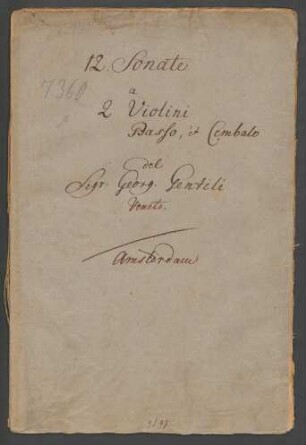 12. Sonate
7360
a
2 Violini
Basso, et Cembalo
del
Sigr. Georg. Gentili
Veneto.
Amsterdam